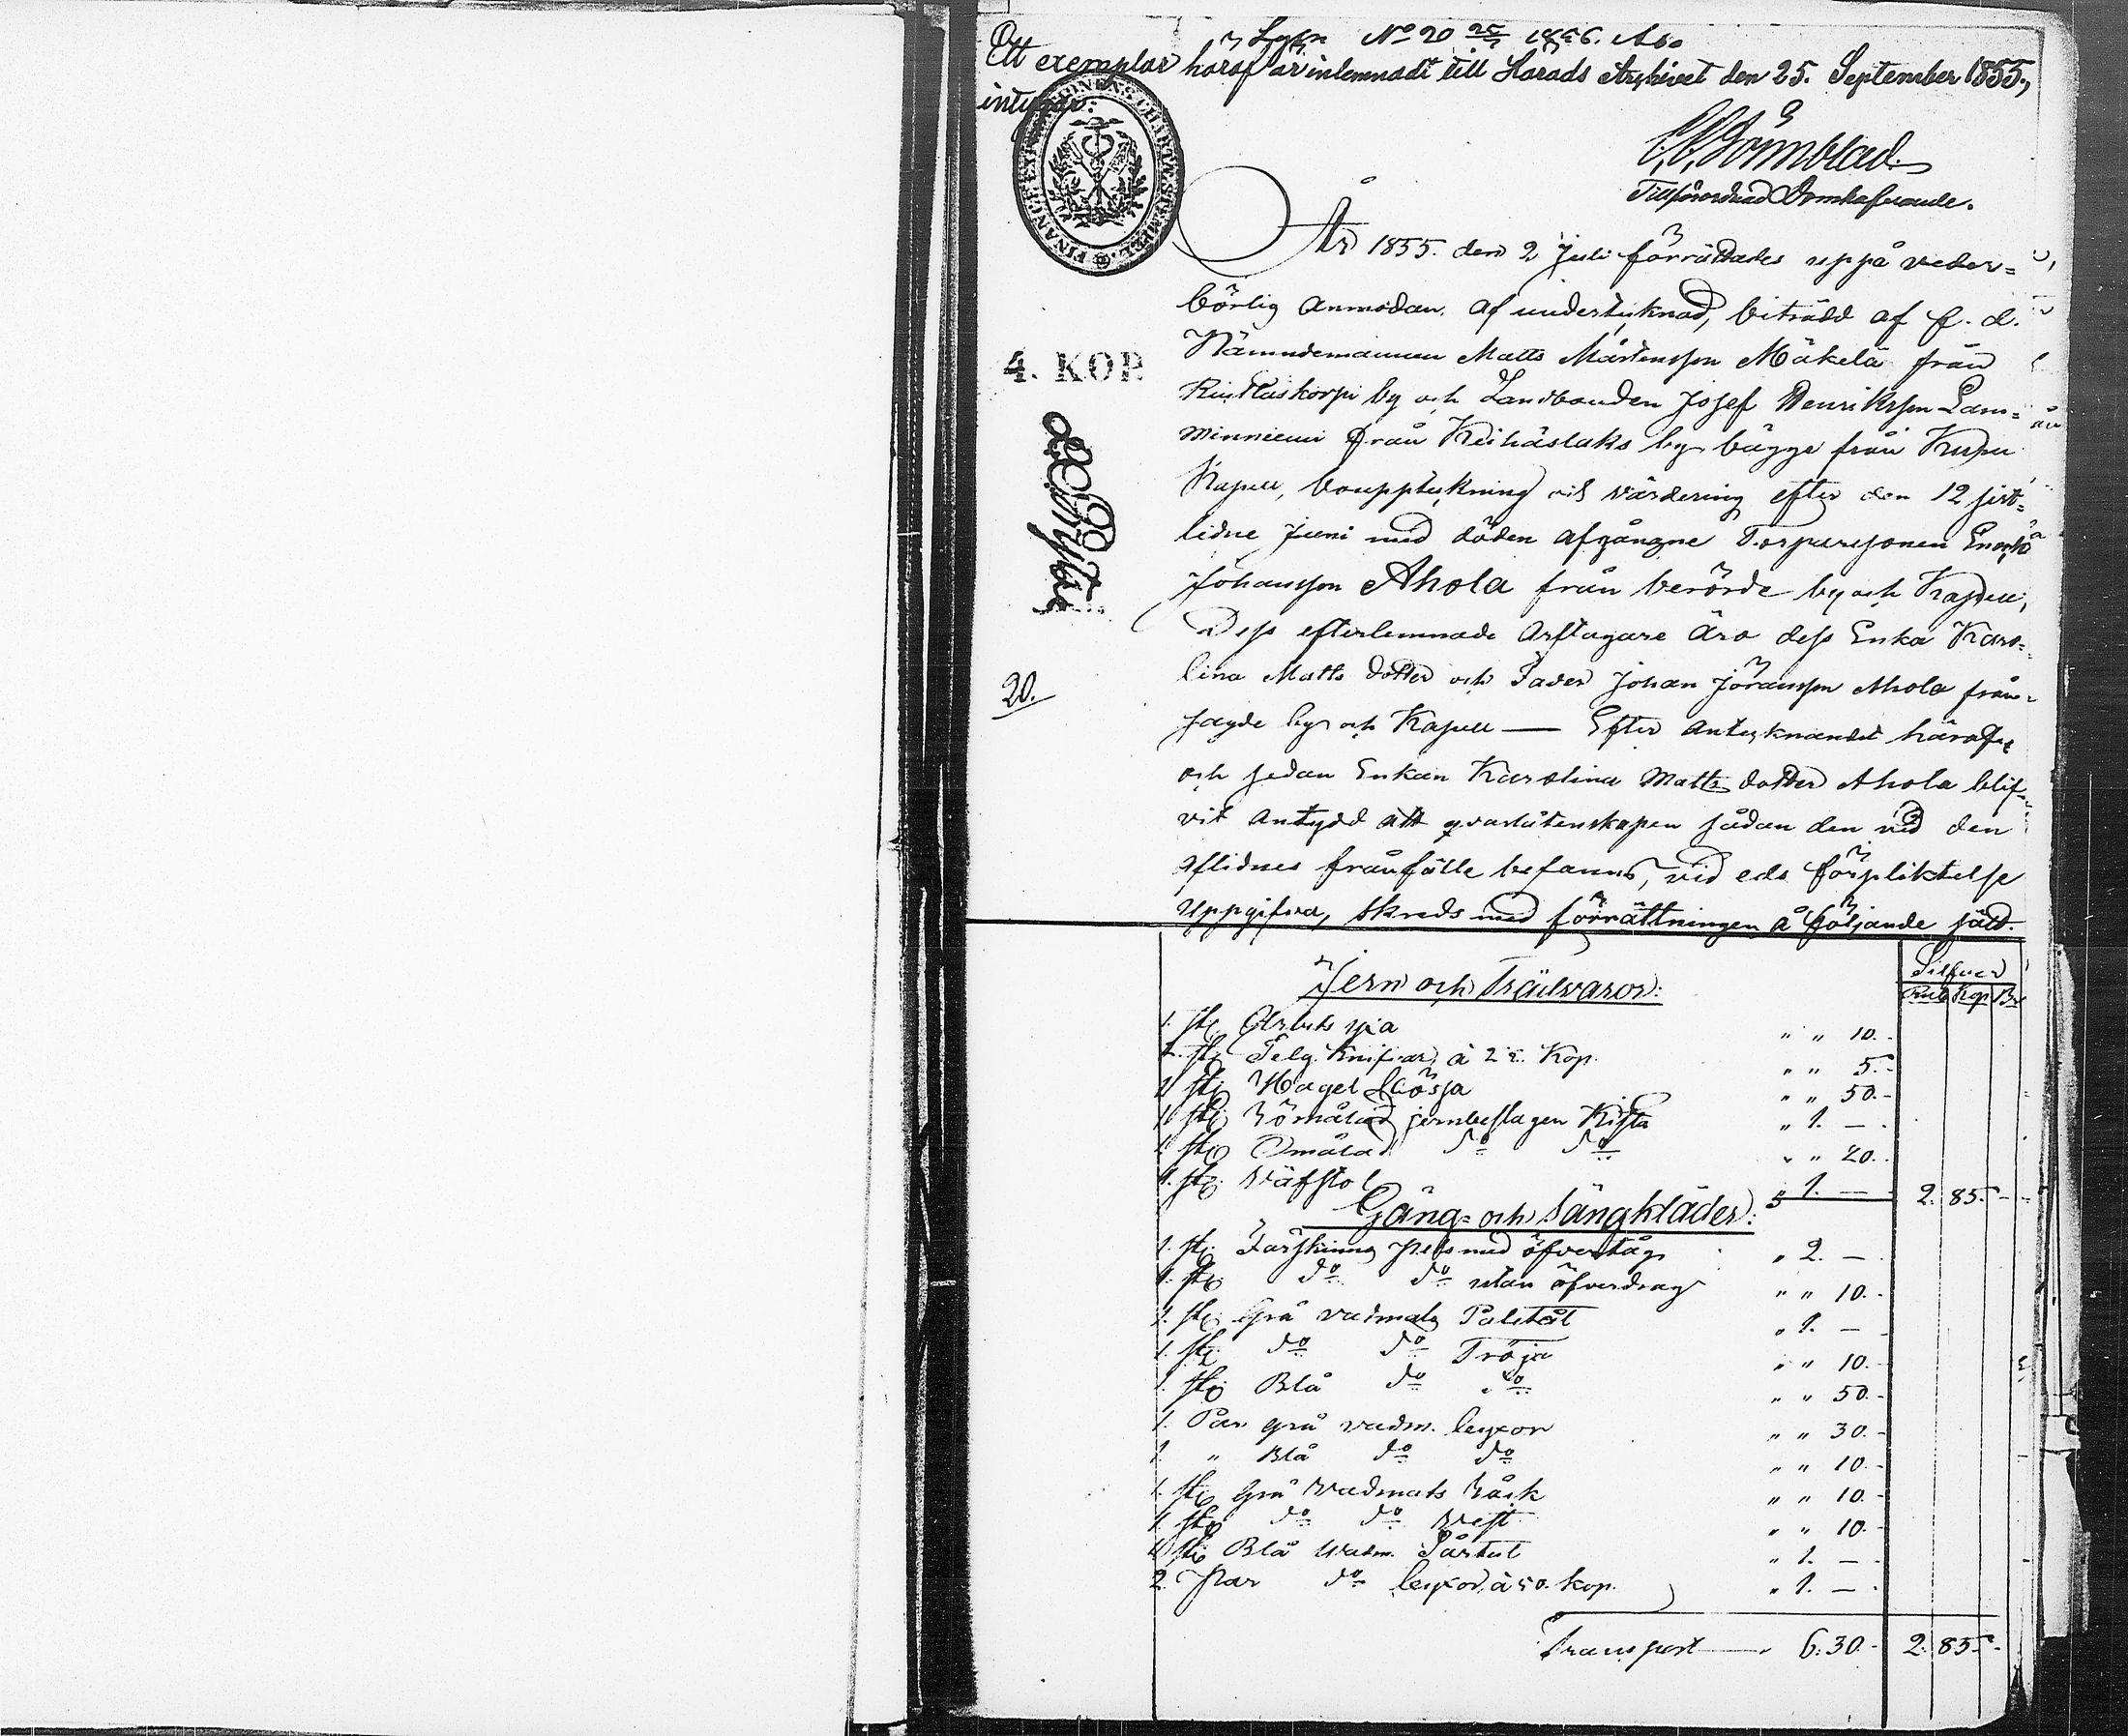 No 20 1856. Abo
Ett exemplar häraf är inlemnadt till Härads Arkivet den 25. September 1855,
intygar:
FINANCE EXPEDITIONENS CHARTÆ STEMPEL.
Tillförordnad Domhafvande.
År 1855. den 2 Juli förrättades uppå veder=
börlig anmodan af undertecknad, biträdd af f. d.
4. KOP.
Nämndemannen Matts Mårtensson Mäkelä från
by och Landbonden Josef Henriksson Lam=
minniemi från Keihäslaks by bägge från
Kapell, bouppteckning och värdering efter den 12 sist=
lidne Juni med döden afgångne Torparesonen Enoch
Johansson Ahola från berörde by och Kapell,
Dess efterlemnade Arftagare äro dess Enka Karo=
20.
lina Matts dotter och Fader Johan Jöransson Ahola från
sagde by och Kapell — Efter antecknandet häraf
och sedan Enkan Karolina Matts dotter Ahola blif=
vit antydd att qvarlåtenskapen sådan den vid den
aflidnes frånfälle befanns, vid eds förpliktelse
uppgifva, skreds med förrättningen å följande sätt.
Silfver
Jern och Trädvaror:
Rub Kop Br
1. st. Arbets yxa " " 10.-
2. st. Telg knifvar, à 2½ Kop. " " 5.-
1 st. Hagel bössa " " 50.-
1 st. Rödmålad jernbeslagen Kista " 1. —
1 st. Omålad do do " " 20.
1. st. Väfstol " 1. — 2. 85. -
Gång- och Sängkläder:
1. st. Fårskinns pels med öfvertåg " 2. —
1. st. do do utan öfverdrag " " 10.-
1. st. Grå vadmals Paletåt " 1. —
1. st. do do Tröja " " 10.-
1. st. Blå do do " " 50.-
1. Par grå vadm. byxor " " 30.-
1. " Blå do do " " 10.-
1. st. Grå Vadmals Råck " " 10.-
1. st. do do West " " 10.-
1 st. Blå Wadm. " 1. —
2. Par do byxor, à 50. kop. " 1. —
Transport — " 6. 30.- 2. 85.-